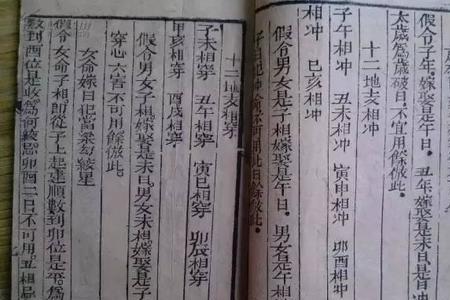 假令子年。嫁娶是午日。丑年。嫁娶是未日。是
太歲爲歲破日。不宜用。餘倣此。
十二地支相冲
子午相冲 丑未相冲 寅申相冲 卯酉相冲
相冲 巳亥相冲
假令男女是子相。嫁娶是午日。男女是午相
子日 犯冲 命 不可用此日。餘倣此。
十二地支相穿
子未相穿 丑午相穿 寅巳相穿 卯辰相穿
申亥相穿 酉戌相穿
假令男女子相。嫁娶是未日。男女未相。嫁娶是子
穿心六害。不可用。餘倣此。
女命嫁日犯當 絞星
假令女命子相。即從子上起建。順數到卯位是平。爲
數到酉位是收。爲 絞。忌卯 二日。不可用。丑相忌